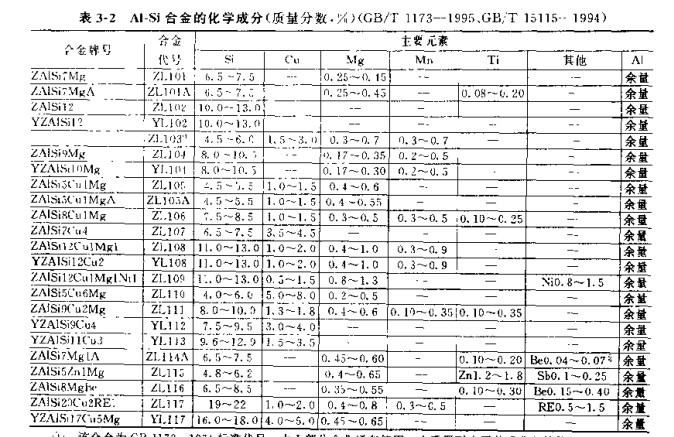 表 3-2 Al-Si 合金的化学成分(质量分数,%)(GB/T 1173—1995、GB/T 15115—1994)
合金牌号 合金代号 主要元素
Si Cu Mg Mn Ti 其他 Al
ZAlSi7Mg ZL101 6.5~7.5 — 0.25~0.45 — — — 余量
ZAlSi7MgA ZL101A 6.5~7.5 — 0.25~0.45 — 0.08~0.20 — 余量
ZAlSi12 ZL102 10.0~13.0 — — — — — 余量
YZAlSi12 YL102 10.0~13.0 — — — — — 余量
ZL103 4.5~6.0 1.5~3.0 0.3~0.7 0.3~0.7 — — 余量
ZAlSi9Mg ZL104 8.0~10.5 — 0.17~0.35 0.2~0.5 — — 余量
YZAlSi10Mg YL104 8.0~10.5 — 0.17~0.30 0.2~0.5 — — 余量
ZAlSi5Cu1Mg ZL105 4.5~5.5 1.0~1.5 0.4~0.6 — — — 余量
ZAlSi5Cu1MgA ZL105A 4.5~5.5 1.0~1.5 0.4~0.55 — — — 余量
ZAlSi8Cu1Mg ZL106 7.5~8.5 1.0~1.5 0.3~0.5 0.3~0.5 0.10~0.25 — 余量
ZAlSi7Cu4 ZL107 6.5~7.5 3.5~4.5 — — — — 余量
ZAlSi12Cu1Mg1 ZL108 11.0~13.0 1.0~2.0 0.4~1.0 0.3~0.9 — — 余量
YZAlSi12Cu2 YL108 11.0~13.0 1.0~2.0 0.4~1.0 0.3~0.9 — — 余量
ZAlSi12Cu1Mg1Ni1 ZL109 11.0~13.0 0.5~1.5 0.8~1.3 — — Ni0.8~1.5 余量
ZAlSi5Cu6Mg ZL110 4.0~6.0 5.0~8.0 0.2~0.5 — — — 余量
ZAlSi9Cu2Mg ZL111 8.0~10.0 1.3~1.8 0.4~0.6 0.10~0.35 0.10~0.35 — 余量
YZAlSi9Cu4 YL112 7.5~9.5 3.0~4.0 — — — — 余量
YZAlSi11Cu3 YL113 9.6~12.0 1.5~3.5 — — — — 余量
ZAlSi7Mg1A ZL114A 6.5~7.5 — 0.45~0.60 — 0.10~0.20 Be0.04~0.07② 余量
ZAlSi5Zn1Mg ZL115 4.8~6.2 — 0.4~0.65 — Zn1.2~1.8 Sb0.1~0.25 余量
ZAlSi8MgBe ZL116 6.5~8.5 — 0.35~0.55 — 0.10~0.30 Be0.15~0.40 余量
ZAlSi20Cu2RE1 ZL117 19~22 1.0~2.0 0.4~0.8 0.3~0.5 — RE0.5~1.5 余量
YZAlSi17Cu5Mg YL117 16.0~18.0 4.0~5.0 0.45~0.65 — — — 余量